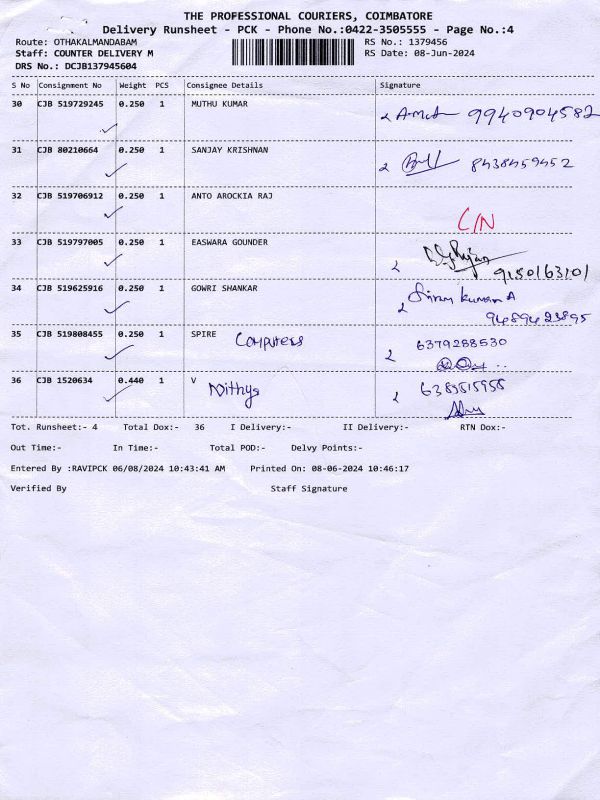 THE PROFESSIONAL COURIERS, COIMBATORE
Delivery Runsheet - PCK - Phone No.:0422-3505555 - Page No.:4
Route: OTHAKALMANDABAM RS No.: 1379456
Staff: COUNTER DELIVERY M RS Date: 08-Jun-2024
DRS No.: DCJB137945604
S No Consignment No Weight PCS Consignee Details Signature
30 CJB 519729245 0.250 1 MUTHU KUMAR 9940904582
31 CJB 80210664 0.250 1 SANJAY KRISHNAN 8438459452
32 CJB 519706912 0.250 1 ANTO AROCKIA RAJ C/N
33 CJB 519797005 0.250 1 EASWARA GOUNDER
9150163101
34 CJB 519625916 0.250 1 GOWRI SHANKAR kumar A
9489423895
35 CJB 519808455 0.250 1 SPIRE Computers 6379288530
36 CJB 1520634 0.440 1 V Nithya 6383515955
Tot. Runsheet:- 4 Total Dox:- 36 I Delivery:- II Delivery:- RTN Dox:-
Out Time:- In Time:- Total POD:- Delvy Points:-
Entered By :RAVIPCK 06/08/2024 10:43:41 AM Printed On: 08-06-2024 10:46:17
Verified By Staff Signature